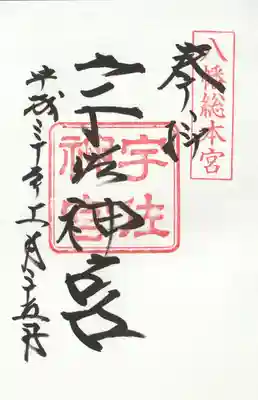 八幡総本宮
奉拝
宇佐神宮
宇佐神宮
平成三十年十一月二十五日